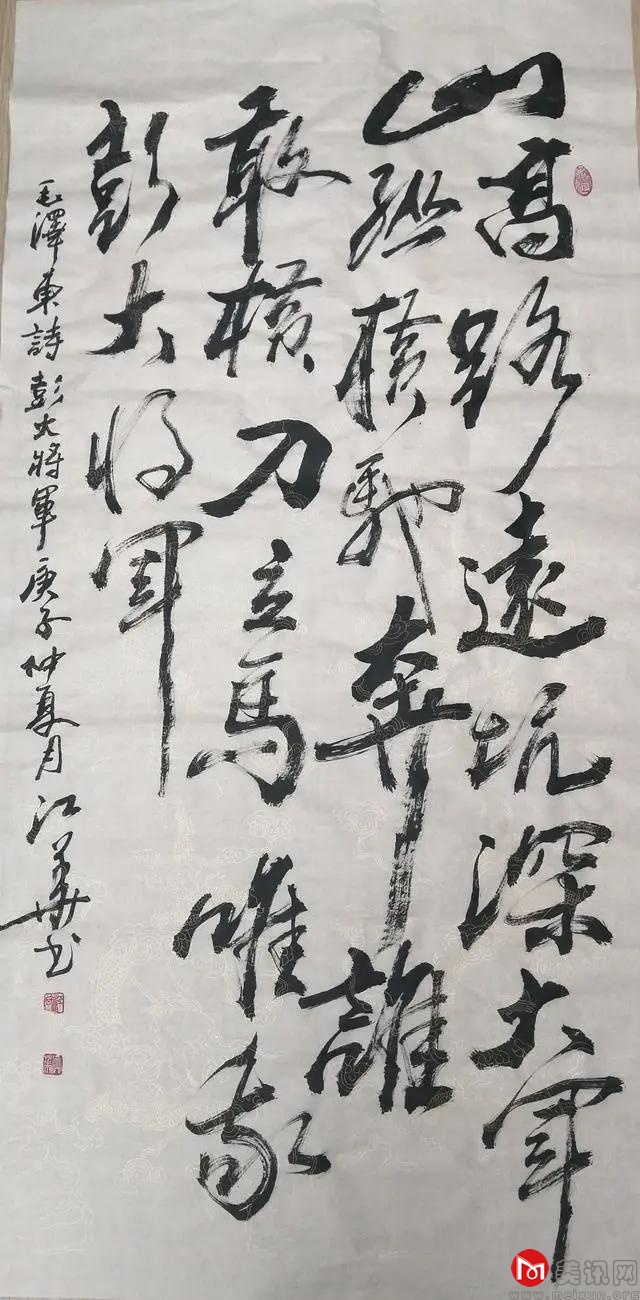 山高路遠坑深大軍
縱橫馳奔誰
敢橫刀立馬唯我
彭大将軍
毛澤東詩彭大将軍庚子仲夏月江華书
美讯网
www.meixun.org